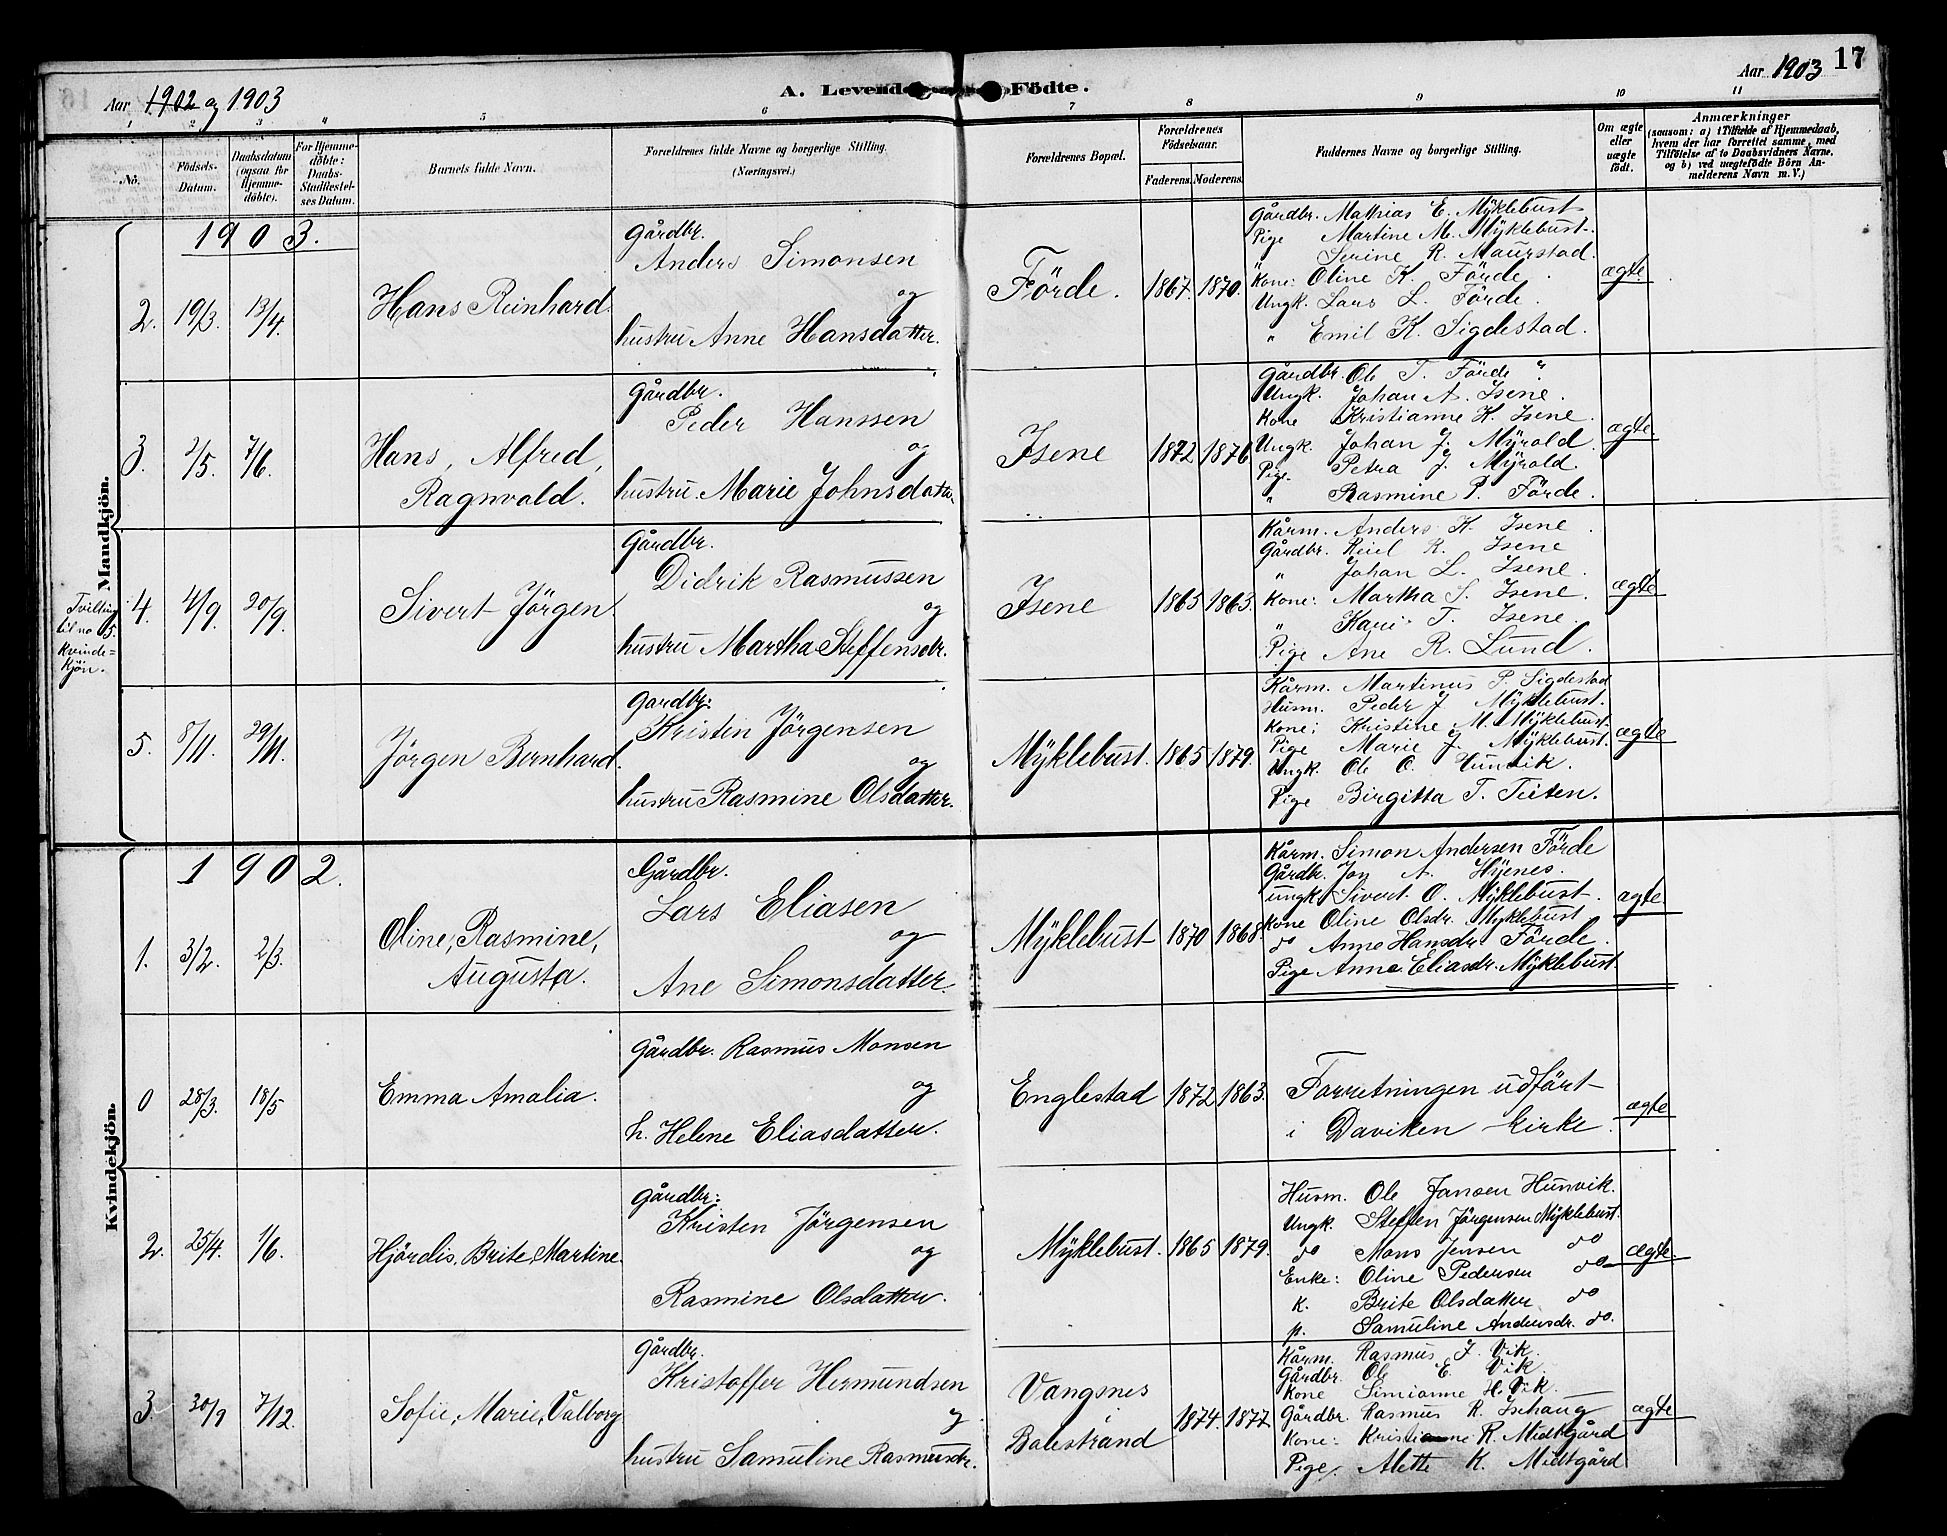 16
Aar 1902 og 1903
A. Levende Födte.
Aar 1903 17
1 2 3 4 5 6 7 8 9 10 11
No.
Födsels-
Datum.
Daabsdatum
(ogsaa for
Hjemme-
döbte).
For Hjemme-
döbte:
Daabs-
Stadfæstel-
ses Datum.
Barnets fulde Navn.
Forældrenes fulde Navne og borgerlige Stilling.
(Næringsvei.)
Forældrenes Bopæl.
Forældrenes
Födselsaar.
Faderens. Moderens.
Faddernes Navne og borgerlige Stilling.
Om ægte
eller
uægte
födt.
Anmærkninger
(saasom: a) i Tilfælde af Hjemmedaab,
hvem der har forrettet samme, med
Tilföielse af to Daabsvidners Navne,
og b) ved uægtefödte Börn An-
melderens Navn m. V.)
Mandkjön.
1903.
2. 19/3. 13/4
Hans Reinhard.
Gårdbr.
Anders Simonsen
og
hustru Anne Hansdatter.
Förde. 1867. 1870.
Gårdbr. Mathias E. Myklebust
Pige Martine M. Myklebust.
" Serine R. Maurstad.
Kone: Oline K. Förde.
Ungk. Lars L. Förde.
" Emil K. Sigdestad.
ægte
3. 2/5. 7/6.
Hans, Alfred,
Ragnvald.
Gårdbr.
Peder Hanssen
og
hustru. Marie Johnsdatter.
Isene 1872 1876
Gårdbr. Ole T. Förde
Ungk. Johan A. Isene.
Kone Kristianne K. Isene.
Ungk. Johan J. Myrold.
Pige. Petra J. Myrold.
" Rasmine P. Förde.
ægte
Tvilling
til no 5.
Kvinde-
kjön.
4. 4/9. 20/9.
Sivert Jörgen.
Gårdbr.
Didrik Rasmussen
og
hustru Martha Steffensdtr.
Isene 1865 1863.
Kårm. Anders K. Isene
Gårdbr. R. Isene
" Johan L. Isene.
Kone: Martha S. Isene.
" Kari T. Isene.
Pige Ane R. Lund.
ægte
5. 8/11. 29/11.
Jörgen Bernhard.
Gardbr:
Kristen Jörgensen
og
hustru Rasmine Olsdatter.
Myklebust. 1865 1879.
Kårm. Martinus P. Sigdestad
Husm. Peder J. Myklebust.
Kone: Kristine M. Myklebust.
Pige Marie J. Myklebust.
Ungk. Ole O. Hunvik.
Pige Birgitta T. Teiten.
ægte
Kvindekjön.
1902.
1. 3/2. 2/3.
Oline, Rasmine,
Augusta.
Gårdbr.
Lars Eliasen
og
Ane Simonsdatter.
Myklebust 1870 1868
Kårm. Simon Andersen Förde
Gårdbr. Jon A. Hyenes.
ungk. Sivert O. Myklebust.
Kone Oline Olsdr. Myklebust
do Anne Hansdr. Förde.
Pige Anne Eliasdr. Myklebust.
ægte
0 28/3. 18/5
Emma Amalia.
Gårdbr. Rasmus Monsen
og
h. Helene Eliasdatter.
Englestad 1872 1863.
Forretningen udfört
i Daviken kirke.
ægte
2. 25/4. 1/6.
Hjördis, Brite, Martine.
Gårdbr:
Kristen Jörgensen
og
Rasmine Olsdatter.
Myklebust. 1865 1879.
Husm. Ole Jansen Hunvik.
Ungk. Steffen Jörgensen Myklebust.
do Mons Jensen do
Enke: Oline Pedersen do
k. Brite Olsdatter do
p. Samuline Andersdr. do.
ægte.
3. 30/9 7/12.
Sofie, Marie, Valborg
Gårdbr.
Kristoffer Hermundsen
og
hustru Samuline Rasmusdtr.
Vangsnes
i
Balestrand
1874. 1877.
Kårm. Rasmus J. Vik.
Gårdbr. Ole E. Vik.
Kone Simianne H. Vik.
Gårdbr. Rasmus R. Isehaug
Kone: R. Midtgård
Pige. Alette K. Midtgård
ægte